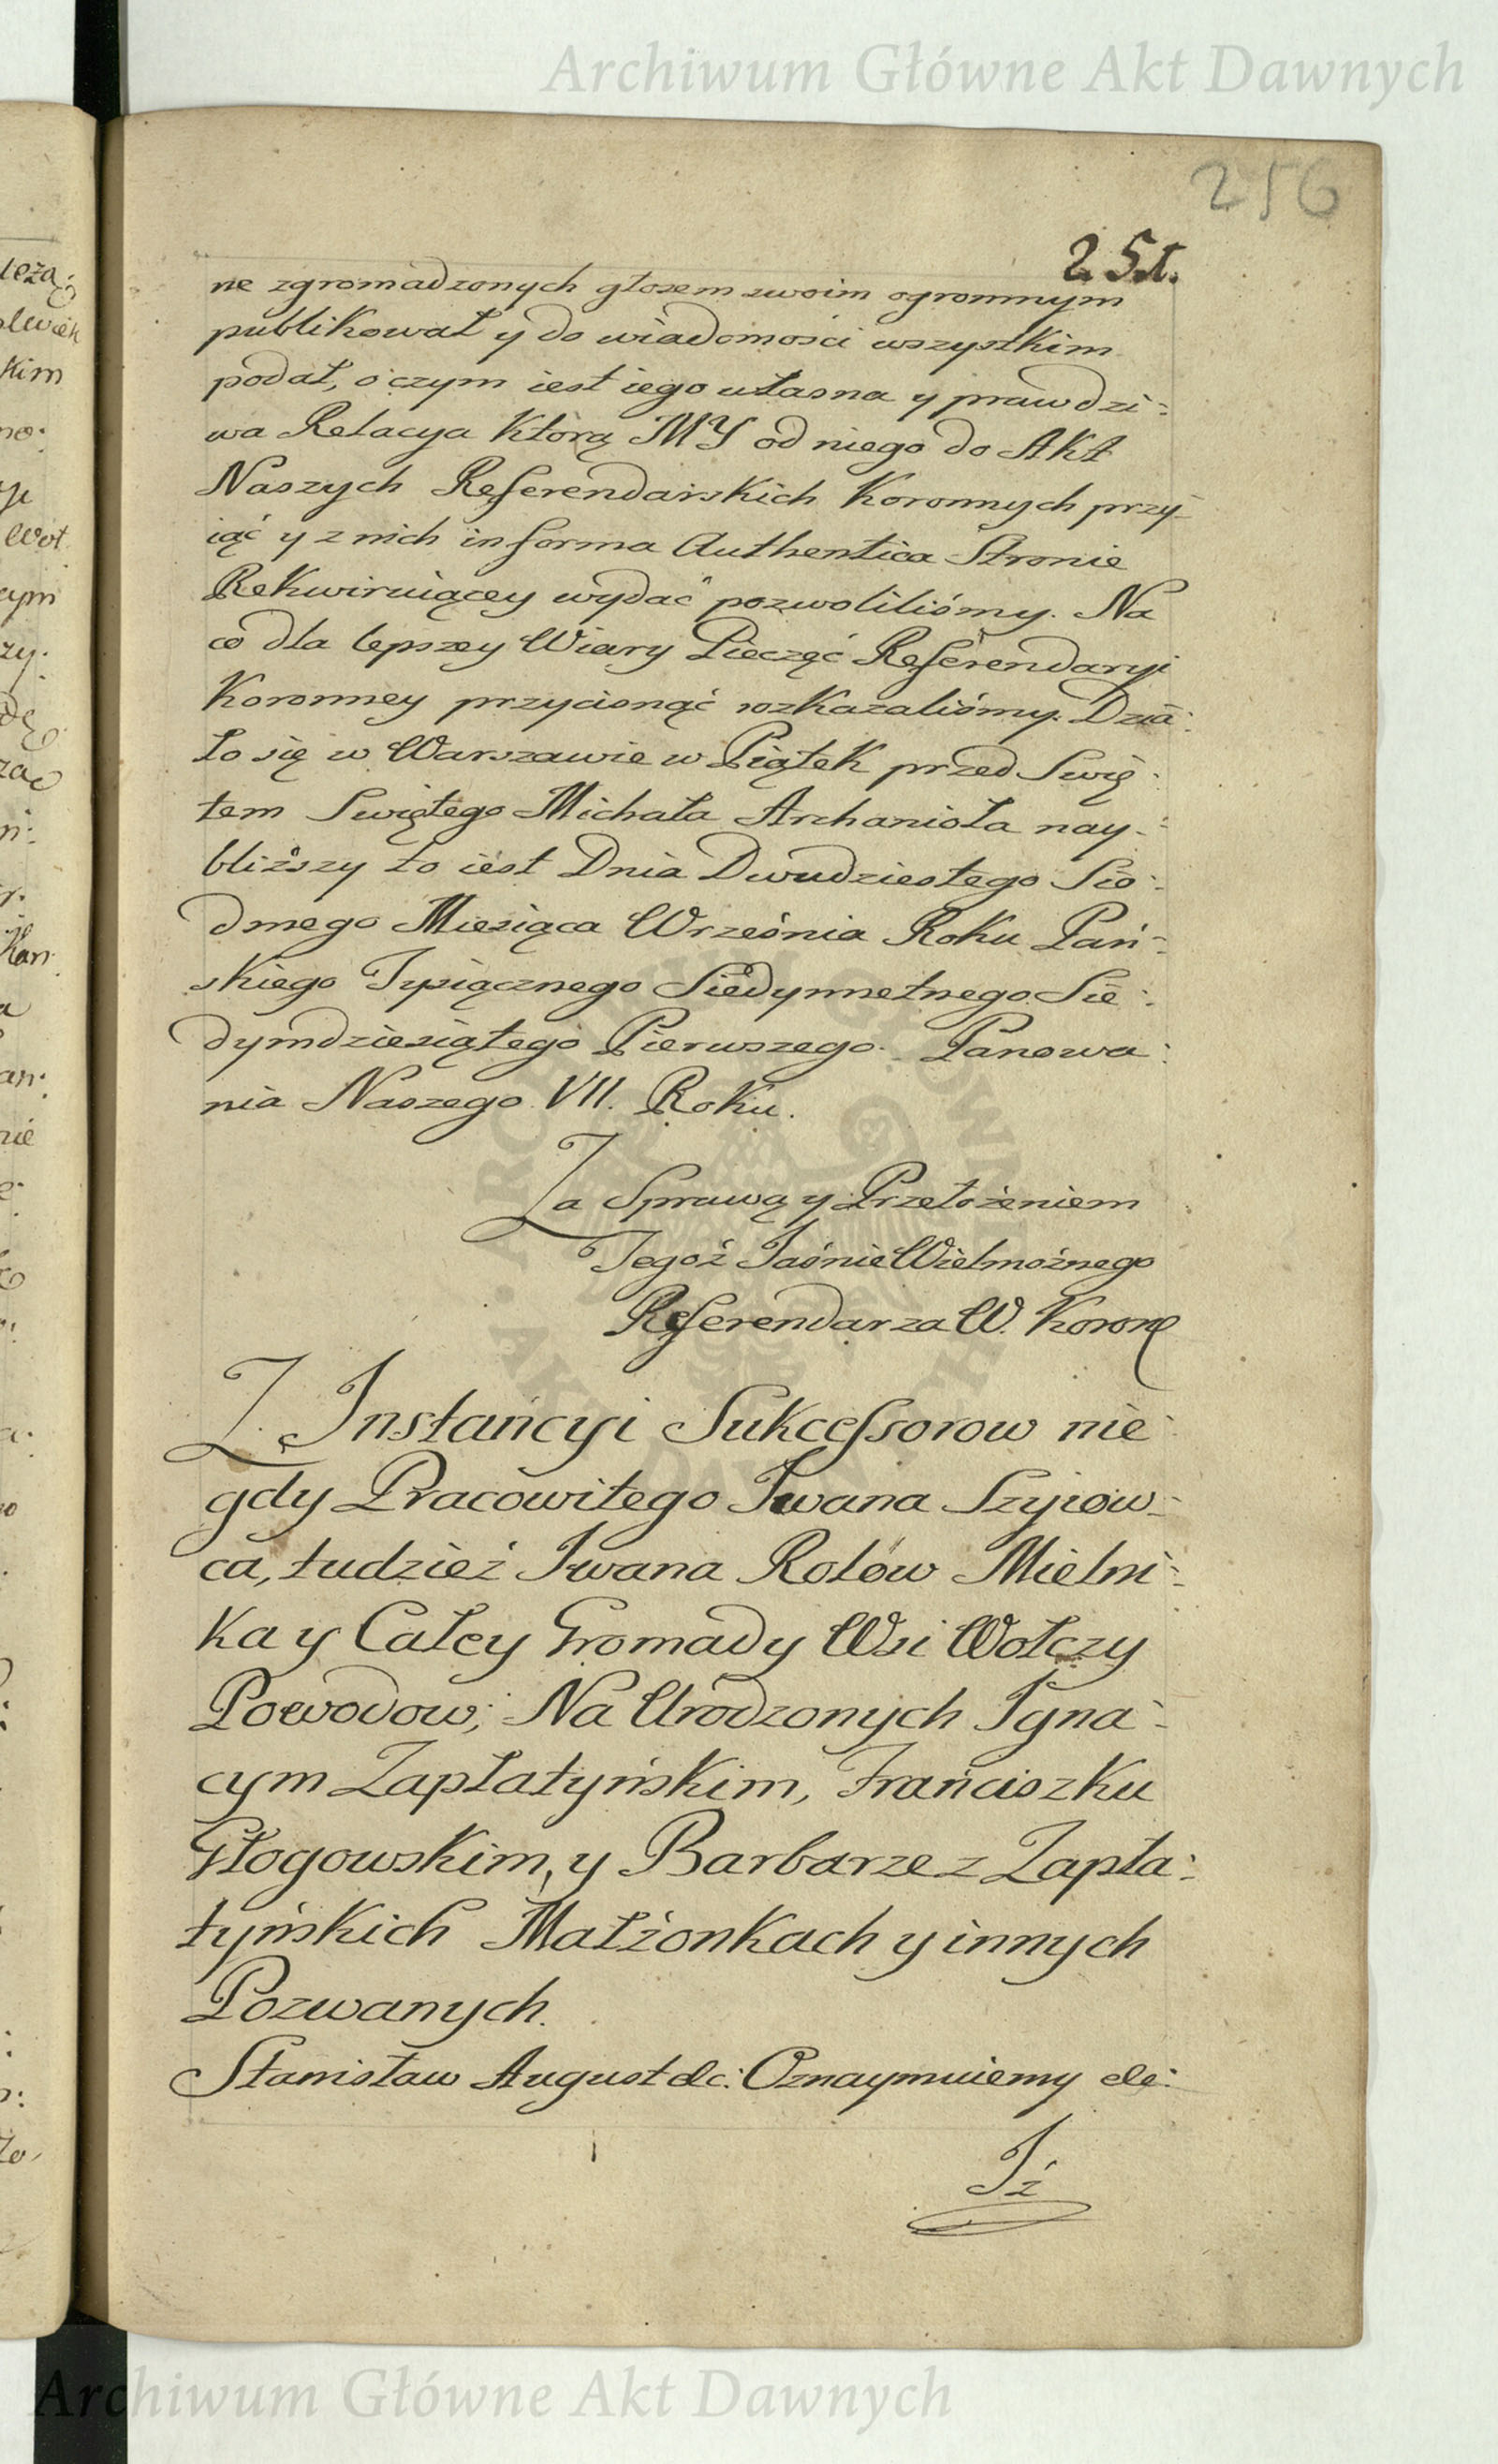 Archiwum Główne Akt Dawnych
256
251.
ne zgromadzonych głosem swoim ogromnym
publikował y do wiadomości wszystkim
podał, o czym iest iego własna y prawdzi:
wa Relacya którą MY od niego do Akt
Naszych Referendarskich Koronnych przy:
iąć y z nich in forma Authentica Stronie
Rekwiruiącey wydać pozwoliliśmy. Na
co dla lepszey Wiary Pieczęć Referendaryi
Koronney przycisnąć rozkazaliśmy. Dzia:
ło się w Warszawie w Piątek przed Swię:
tem Swiętego Michała Archanioła nay:
bliższy to iest Dnia Dwudziestego Sio:
dmego Miesiąca Września Roku Pań:
skiego Tysiącznego Siedymsetnego Sie:
dymdziesiątego Pierwszego. Panowa:
nia Naszego VII. Roku.
Za Sprawą y Przełożeniem
Tegoż Jaśnie Wielmożnego
Referendarza W. Koron
Z Instańcyi Sukcessorow nie:
gdy Pracowitego Iwana Szyiow:
ca, tudzież Iwana Rolów Mielni:
ka y Całey Gromady Wsi Wołczy
Powodow; Na Urodzonych Igna:
cym Zapłatyńskim, Frańciszku
Głogowskim, y Barbarze z Zapła:
tyńskich Małżonkach y innych
Pozwanych.
Stanisław August &c: Oznaymuiemy &c:
Iż
Archiwum Główne Akt Dawnych